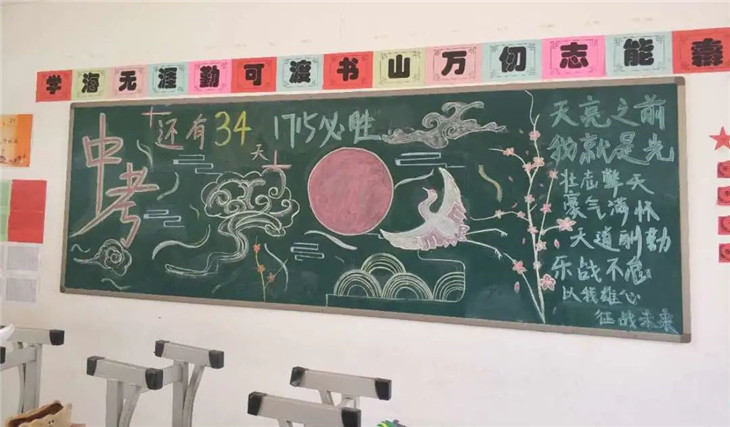 学海无涯勤可渡书山万仞志能
中考
还有34天
1715必胜
天亮之前
我就是光
壮志擎天
豪气满怀
天道酬勤
乐战不怠
以我雄心
征战未来